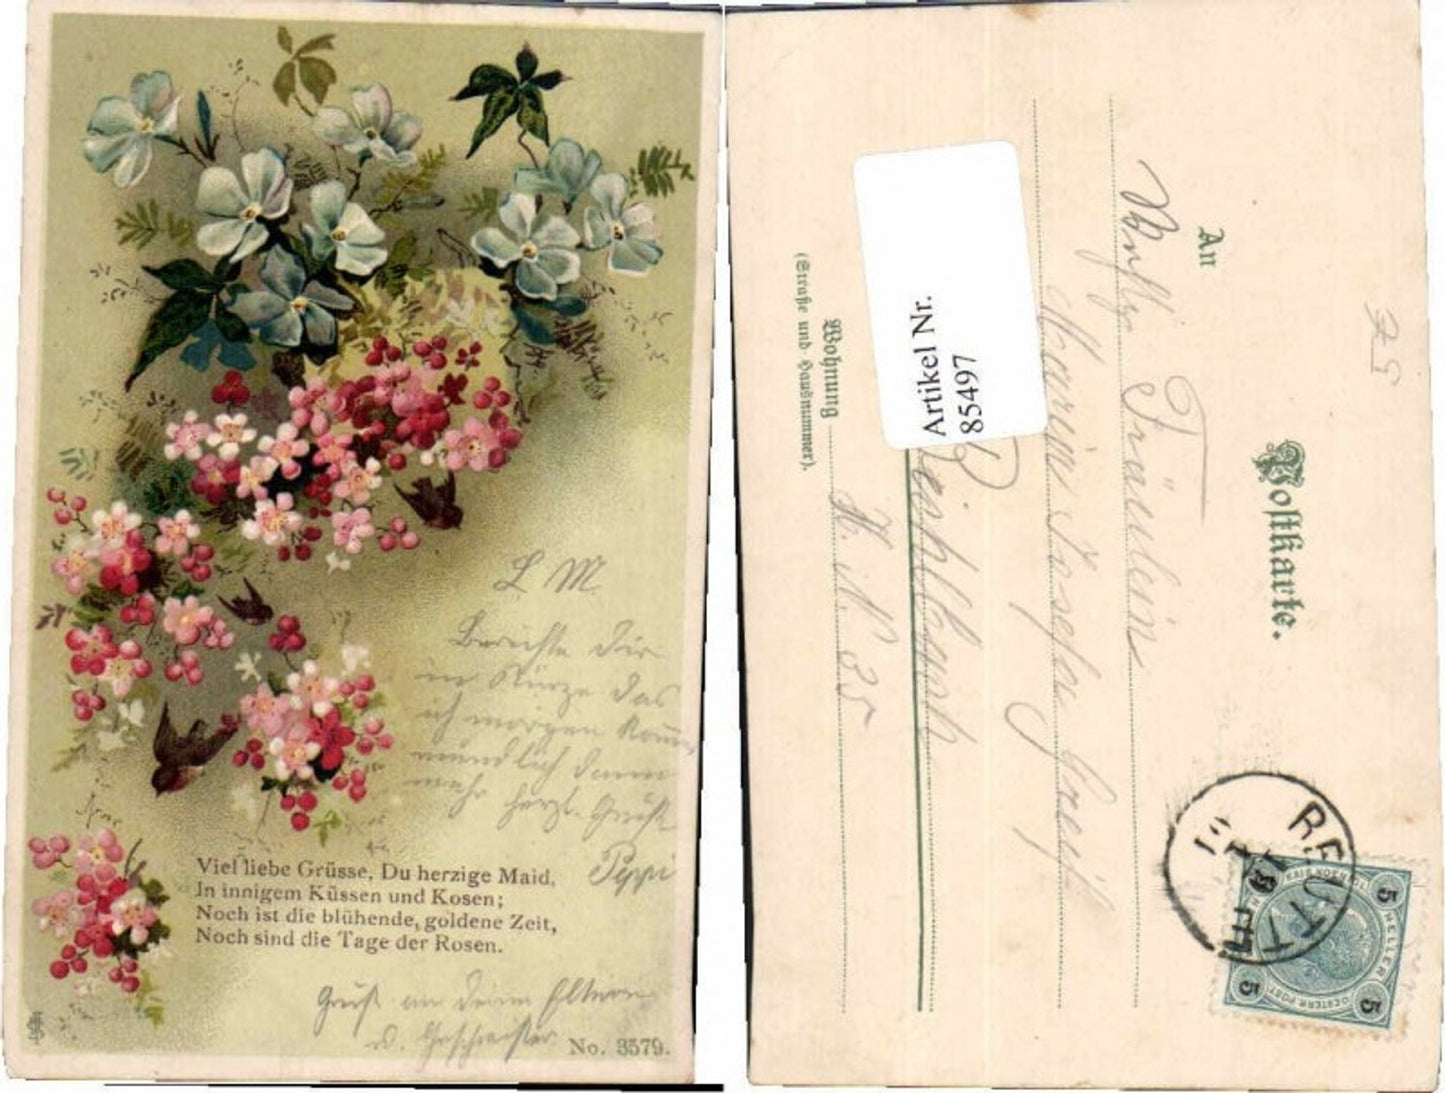 L M.
Berichte Dir
in Kürze das
ich morgen
mündlich dann
mehr herzl. Grüße
Peppi
Viel liebe Grüsse, Du herzige Maid,
In innigem Küssen und Kosen;
Noch ist die blühende, goldene Zeit,
Noch sind die Tage der Rosen.
Gruß an Deine Eltern
u. Geschwister
No. 3579.
Postkarte.
An
Fräulein
Josefa
H. N. 35
Wohnung
(Straße und Hausnummer).
Artikel Nr.
85497
5
5
5
5
HELLER
OESTERR. POST